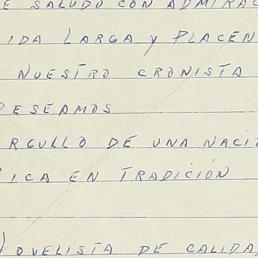 E SALUDO CON ADMIRAC
IDA LARGA Y PLACEN
NUESTRO CRONISTA
DESEAMOS
RGULLO DE UNA NACI
ICA EN TRADICIÓN
NOVELISTA DE CALIDA